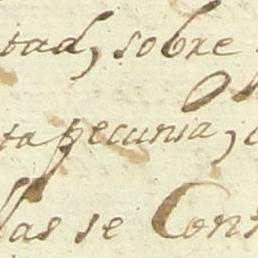 tad, sobre
ta pecunia,
las se Con